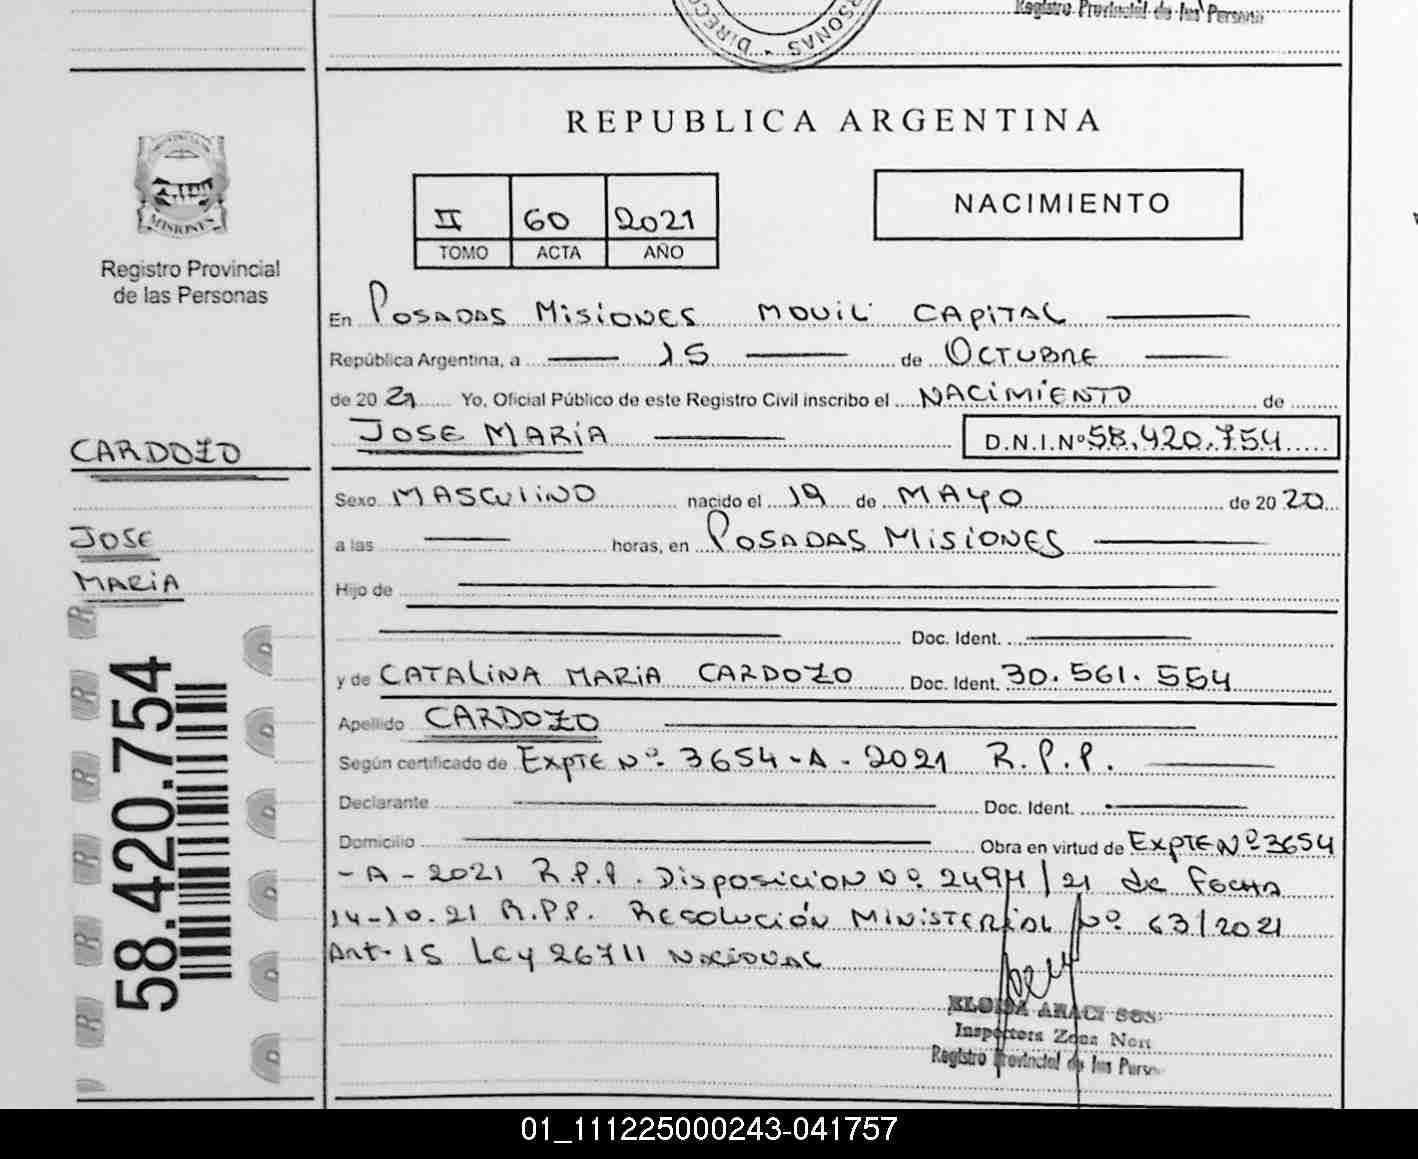 Registro Provincial de las Persona
DIRECC
RSONAS
REPUBLICA ARGENTINA
MISIONES
Registro Provincial
de las Personas
II 60 2021
TOMO ACTA AÑO
NACIMIENTO
En POSADAS MISIONES MOVIL CAPITAL
República Argentina, a 15 de OCTUBRE
de 20 21 Yo, Oficial Público de este Registro Civil inscribo el NACIMIENTO de
JOSE MARIA D.N.I.Nº 58.420.754
CARDOZO
JOSE
MARIA
58.420.754
Sexo MASCULINO nacido el 19 de MAYO de 20 20
a las horas, en POSADAS MISIONES
Hijo de
Doc. Ident.
y de CATALINA MARIA CARDOZO Doc. Ident. 30.561.554
Apellido CARDOZO
Según certificado de EXPTE Nº. 3654-A-2021 R.P.P.
Declarante Doc. Ident.
Domicilio Obra en virtud de EXPTE Nº 3654
-A-2021 R.P.P. DISPOSICION Nº. 2494/21 de FECHA
14-10.21 R.P.P. RESOLUCIÓN MINISTERIAL Nº. 63/2021
Art-15 Ley 26711 NACIONAL
Inspectora Zona Nor
Registro Provincial de las Perso
01_111225000243-041757